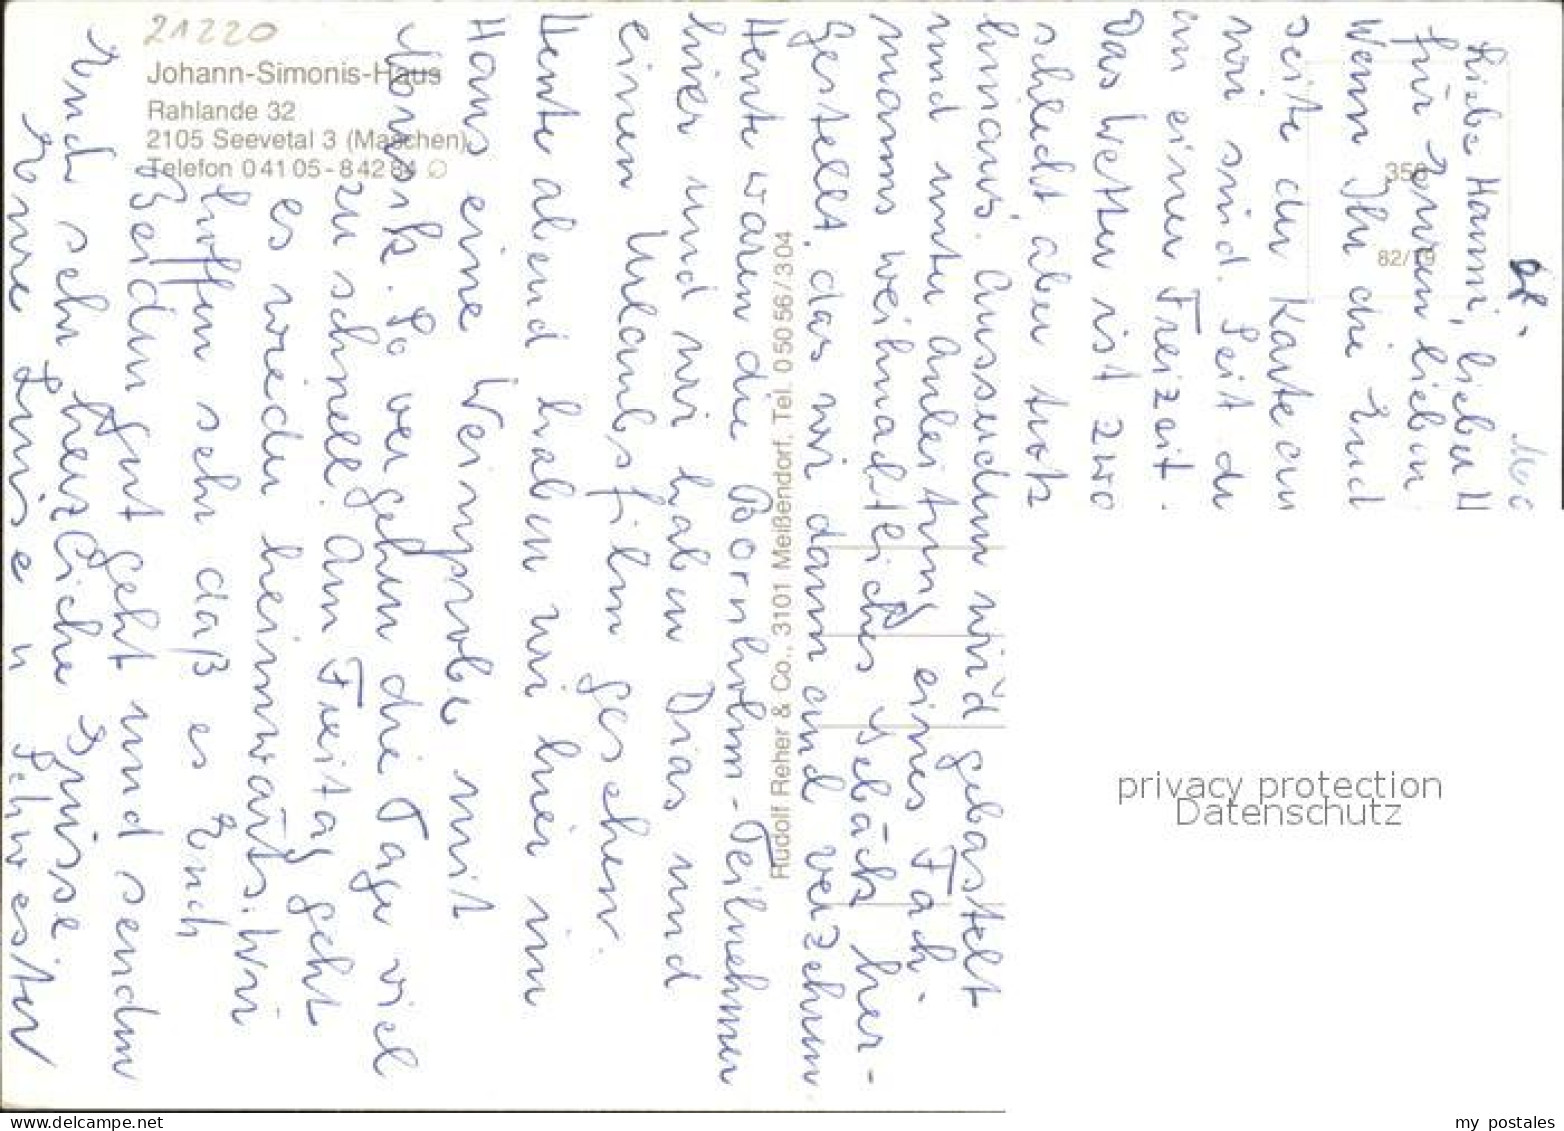 21220
Johann-Simonis-Haus
Rahlande 32
2105 Seevetal 3 (Maschen)
Telefon 0 41 05 - 8 42 84
358
82/79
Rudolf Reher & Co., 3101 Meißendorf, Tel. 0 50 56 / 3 04
Liebe Hanni, lieber
für Euren lieben
Wenn Ihr die Rück
seite der Karte an
wir sind. Seit
an einer Freizeit.
Das Wetter ist zwa
schlecht aber trotz
hinaus. Ausserdem wird gebastelt
und unter Anleitung eines Fach
manns weihnachtliches Gebäck her-
gestellt, das wir dann auch verzehren
Heute waren die Bornholm-Teilnehmer
hier und wir haben Dias und
einen Urlaubsfilm gesehen.
Heute abend haben wir hier im
Haus eine Weinprobe mit
Musik. So vergehen die Tage viel
zu schnell. Am Freitag geht
es wieder heimwärts. Wir
hoffen sehr daß es Euch
Beiden gut geht und senden
Euch sehr herzliche Grüsse
Eure Luise u Schwester
privacy protection
Datenschutz
www.delcampe.net
my_postales